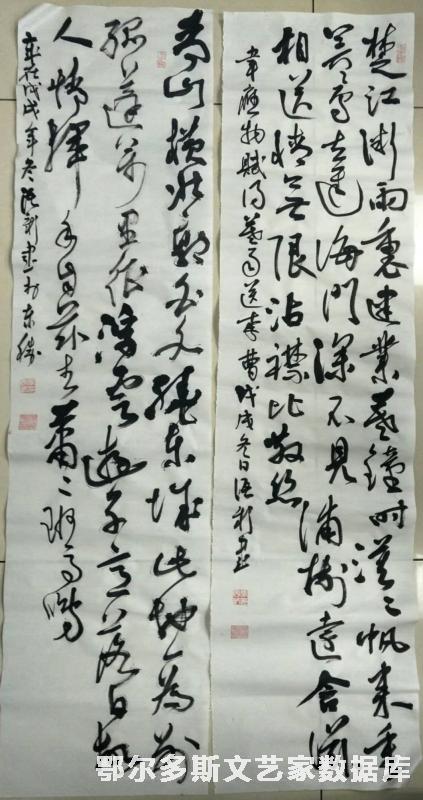 楚江微雨里建业暮钟时漠漠帆来重
冥冥鸟去迟海门深不见浦树远含滋
相送情无限沾襟比散丝
韦应物赋得暮雨送李曹 戊戌冬日
青山横北郭白水绕东城此地一为别
孤蓬万里征浮云游子意落日故
人情挥手自兹去萧萧班马鸣
岁在戊戌年冬 书于东胜
鄂尔多斯文艺家数据库